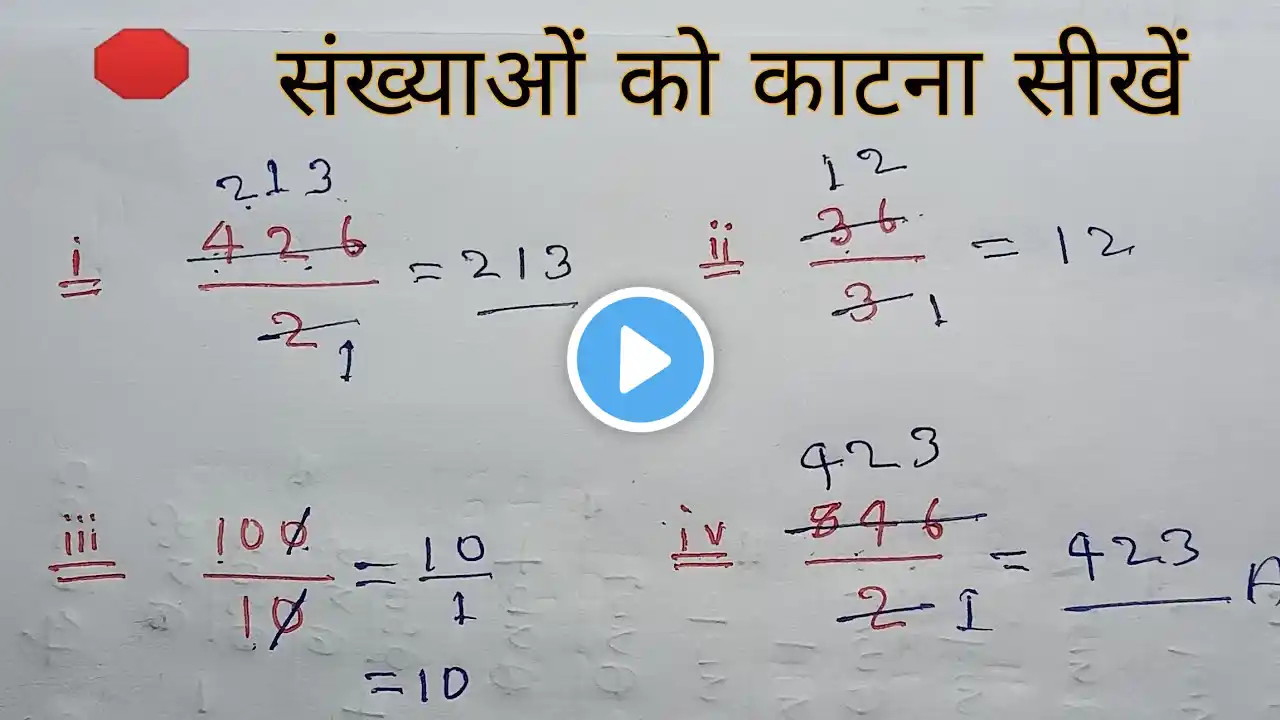 संख्याओं को काटना सीखें
i
213
426
2 1
= 213
ii
12
36
3 1
= 12
iii
100
10
= 10
1
= 10
iv
423
846
2 1
= 423
A